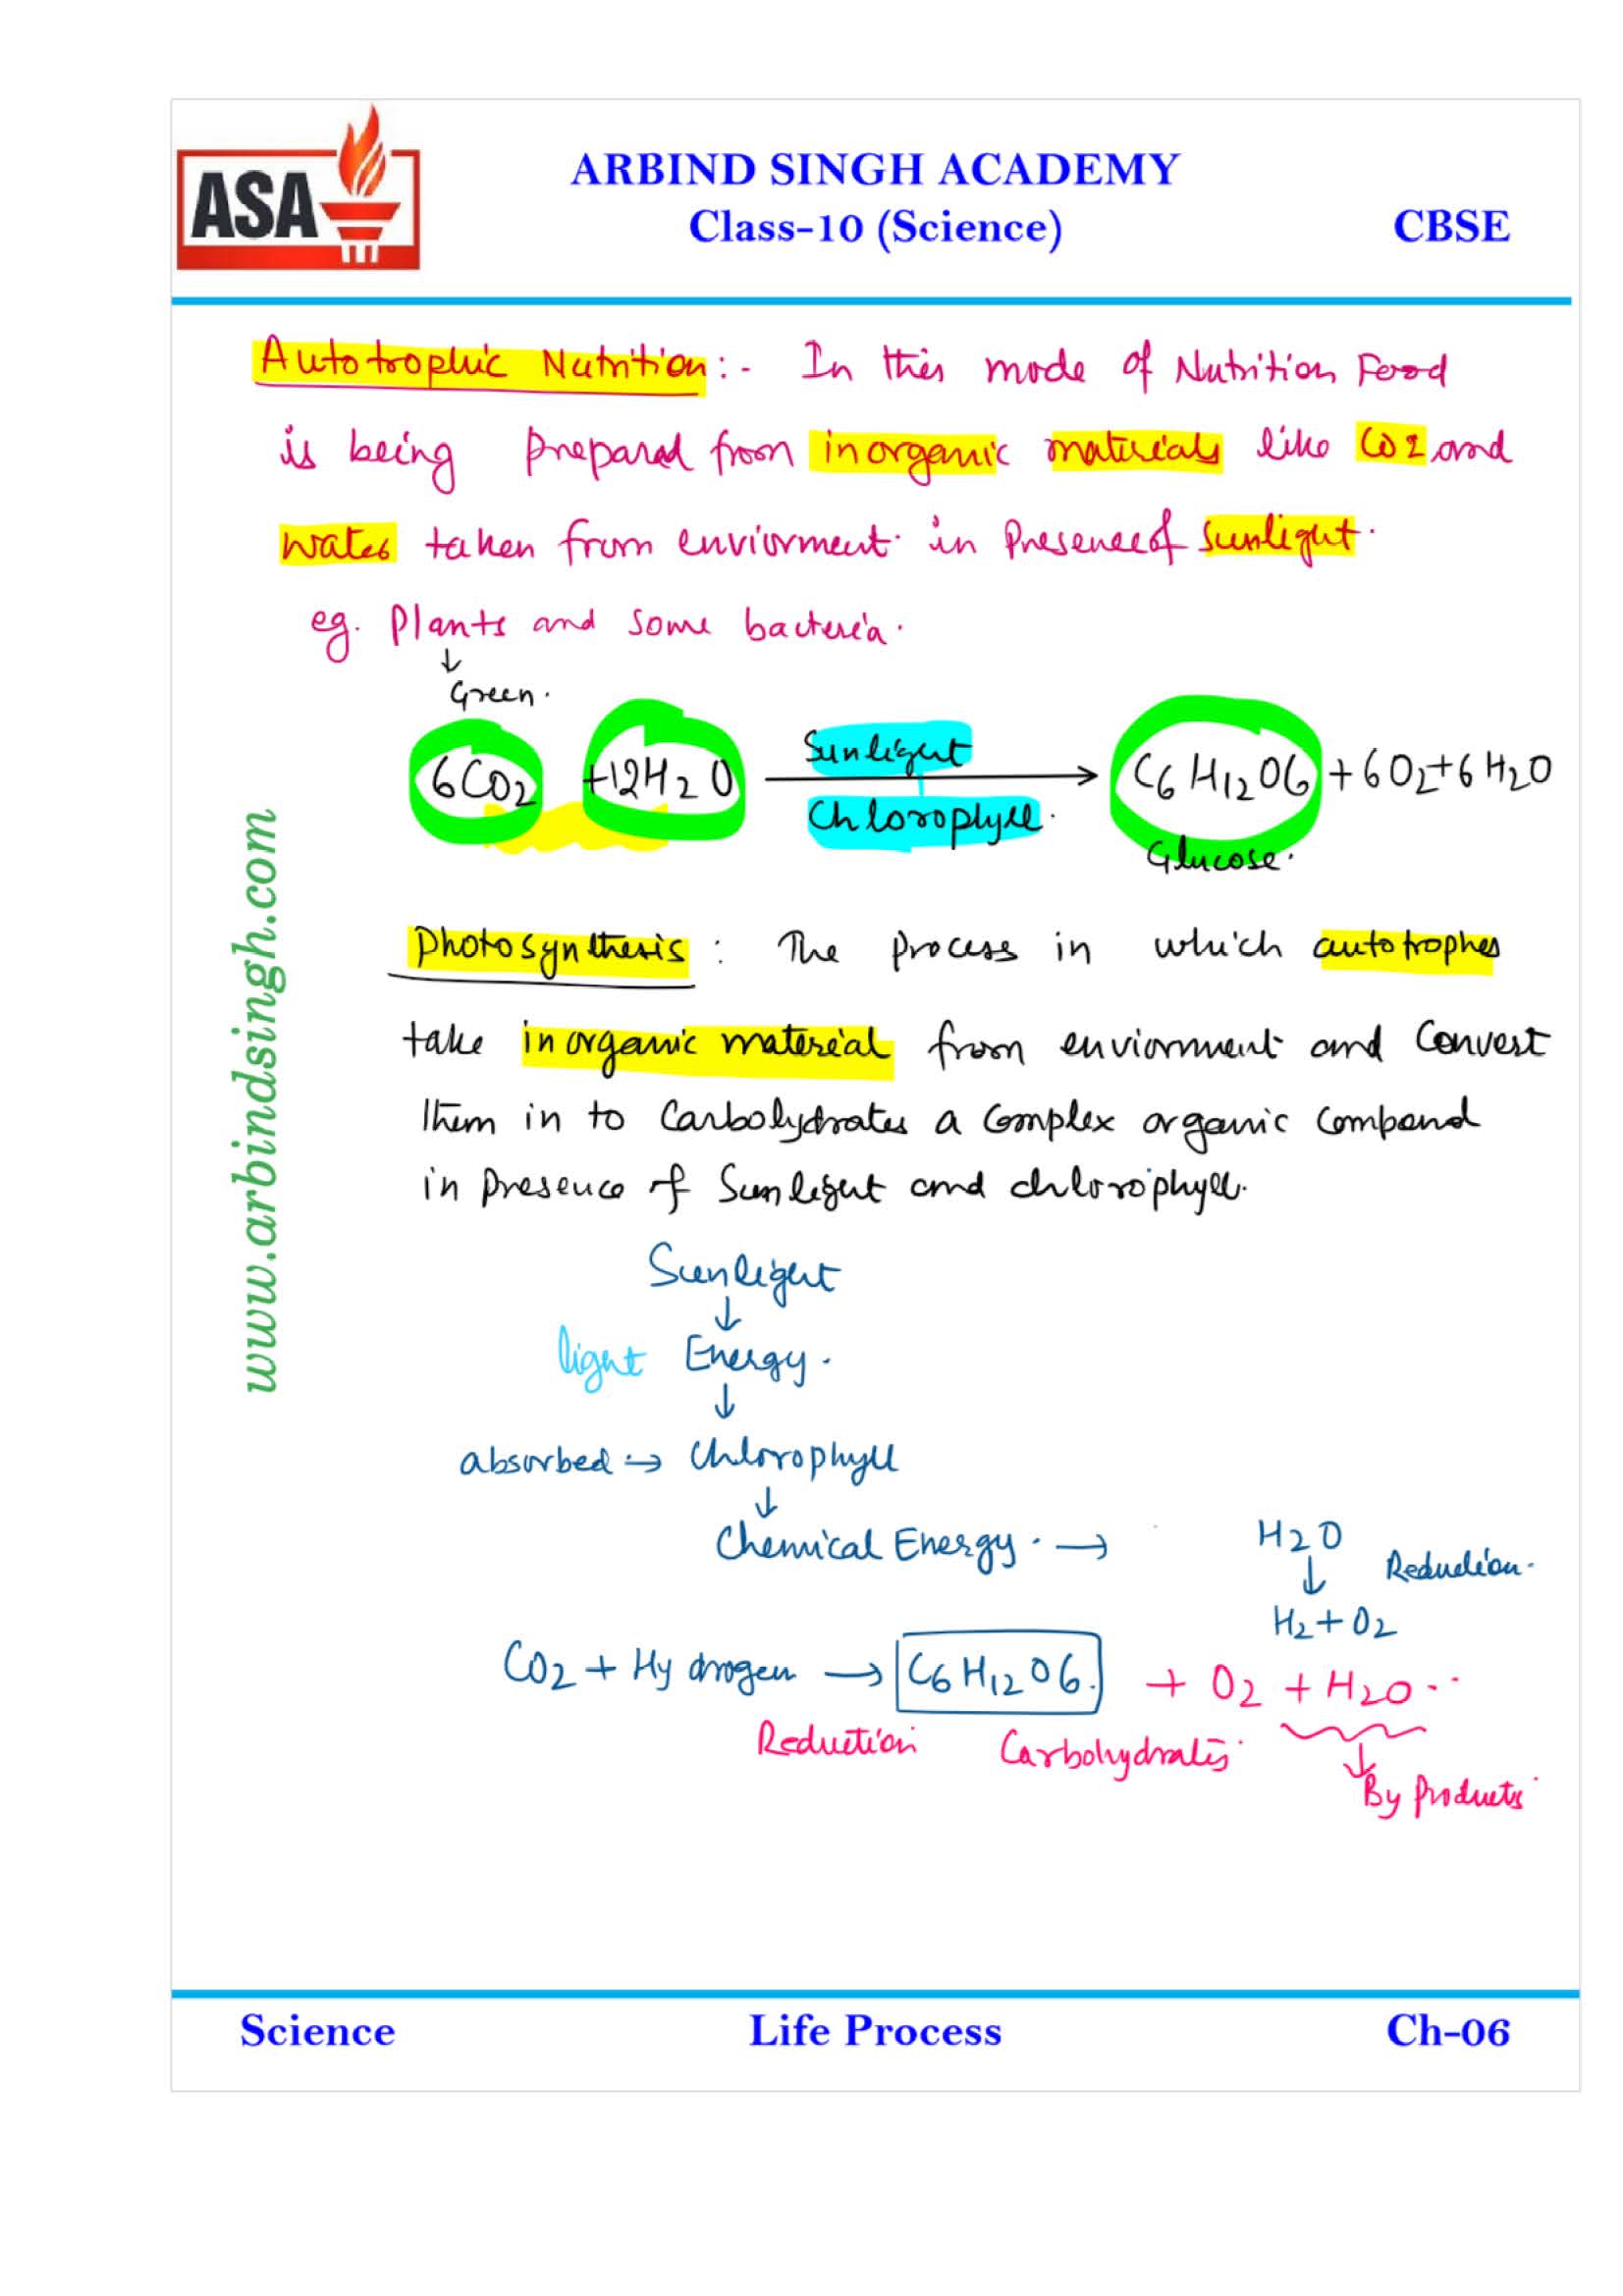 ASA
ARBIND SINGH ACADEMY
Class-10 (Science)
CBSE
Autotrophic Nutrition :- In this mode of Nutrition Food
is being prepared from inorganic materials like CO2 and
water taken from enviorment. in Presence of Sunlight.
eg. Plants and some bacteria.
↓
Green.
6CO2 +12H2O Sunlight → C6H12O6 + 6O2+6H2O
Chlorophyll.
Glucose.
Photosynthesis : The Process in which autotrophes
take inorganic material from enviornment and Convert
them in to Carbohydrates a Complex organic Compond
in presence of Sunlight and chlorophyll.
Sunlight
↓
light Energy.
↓
absorbed → Chlorophyll
↓
Chemical Energy. →
H2O
↓ Reduction.
H2+O2
CO2 + Hydrogen → C6H12O6. + O2 + H2O..
Reduction Carbohydrates
↓
By Products
www.arbindsingh.com
Science Life Process Ch-06